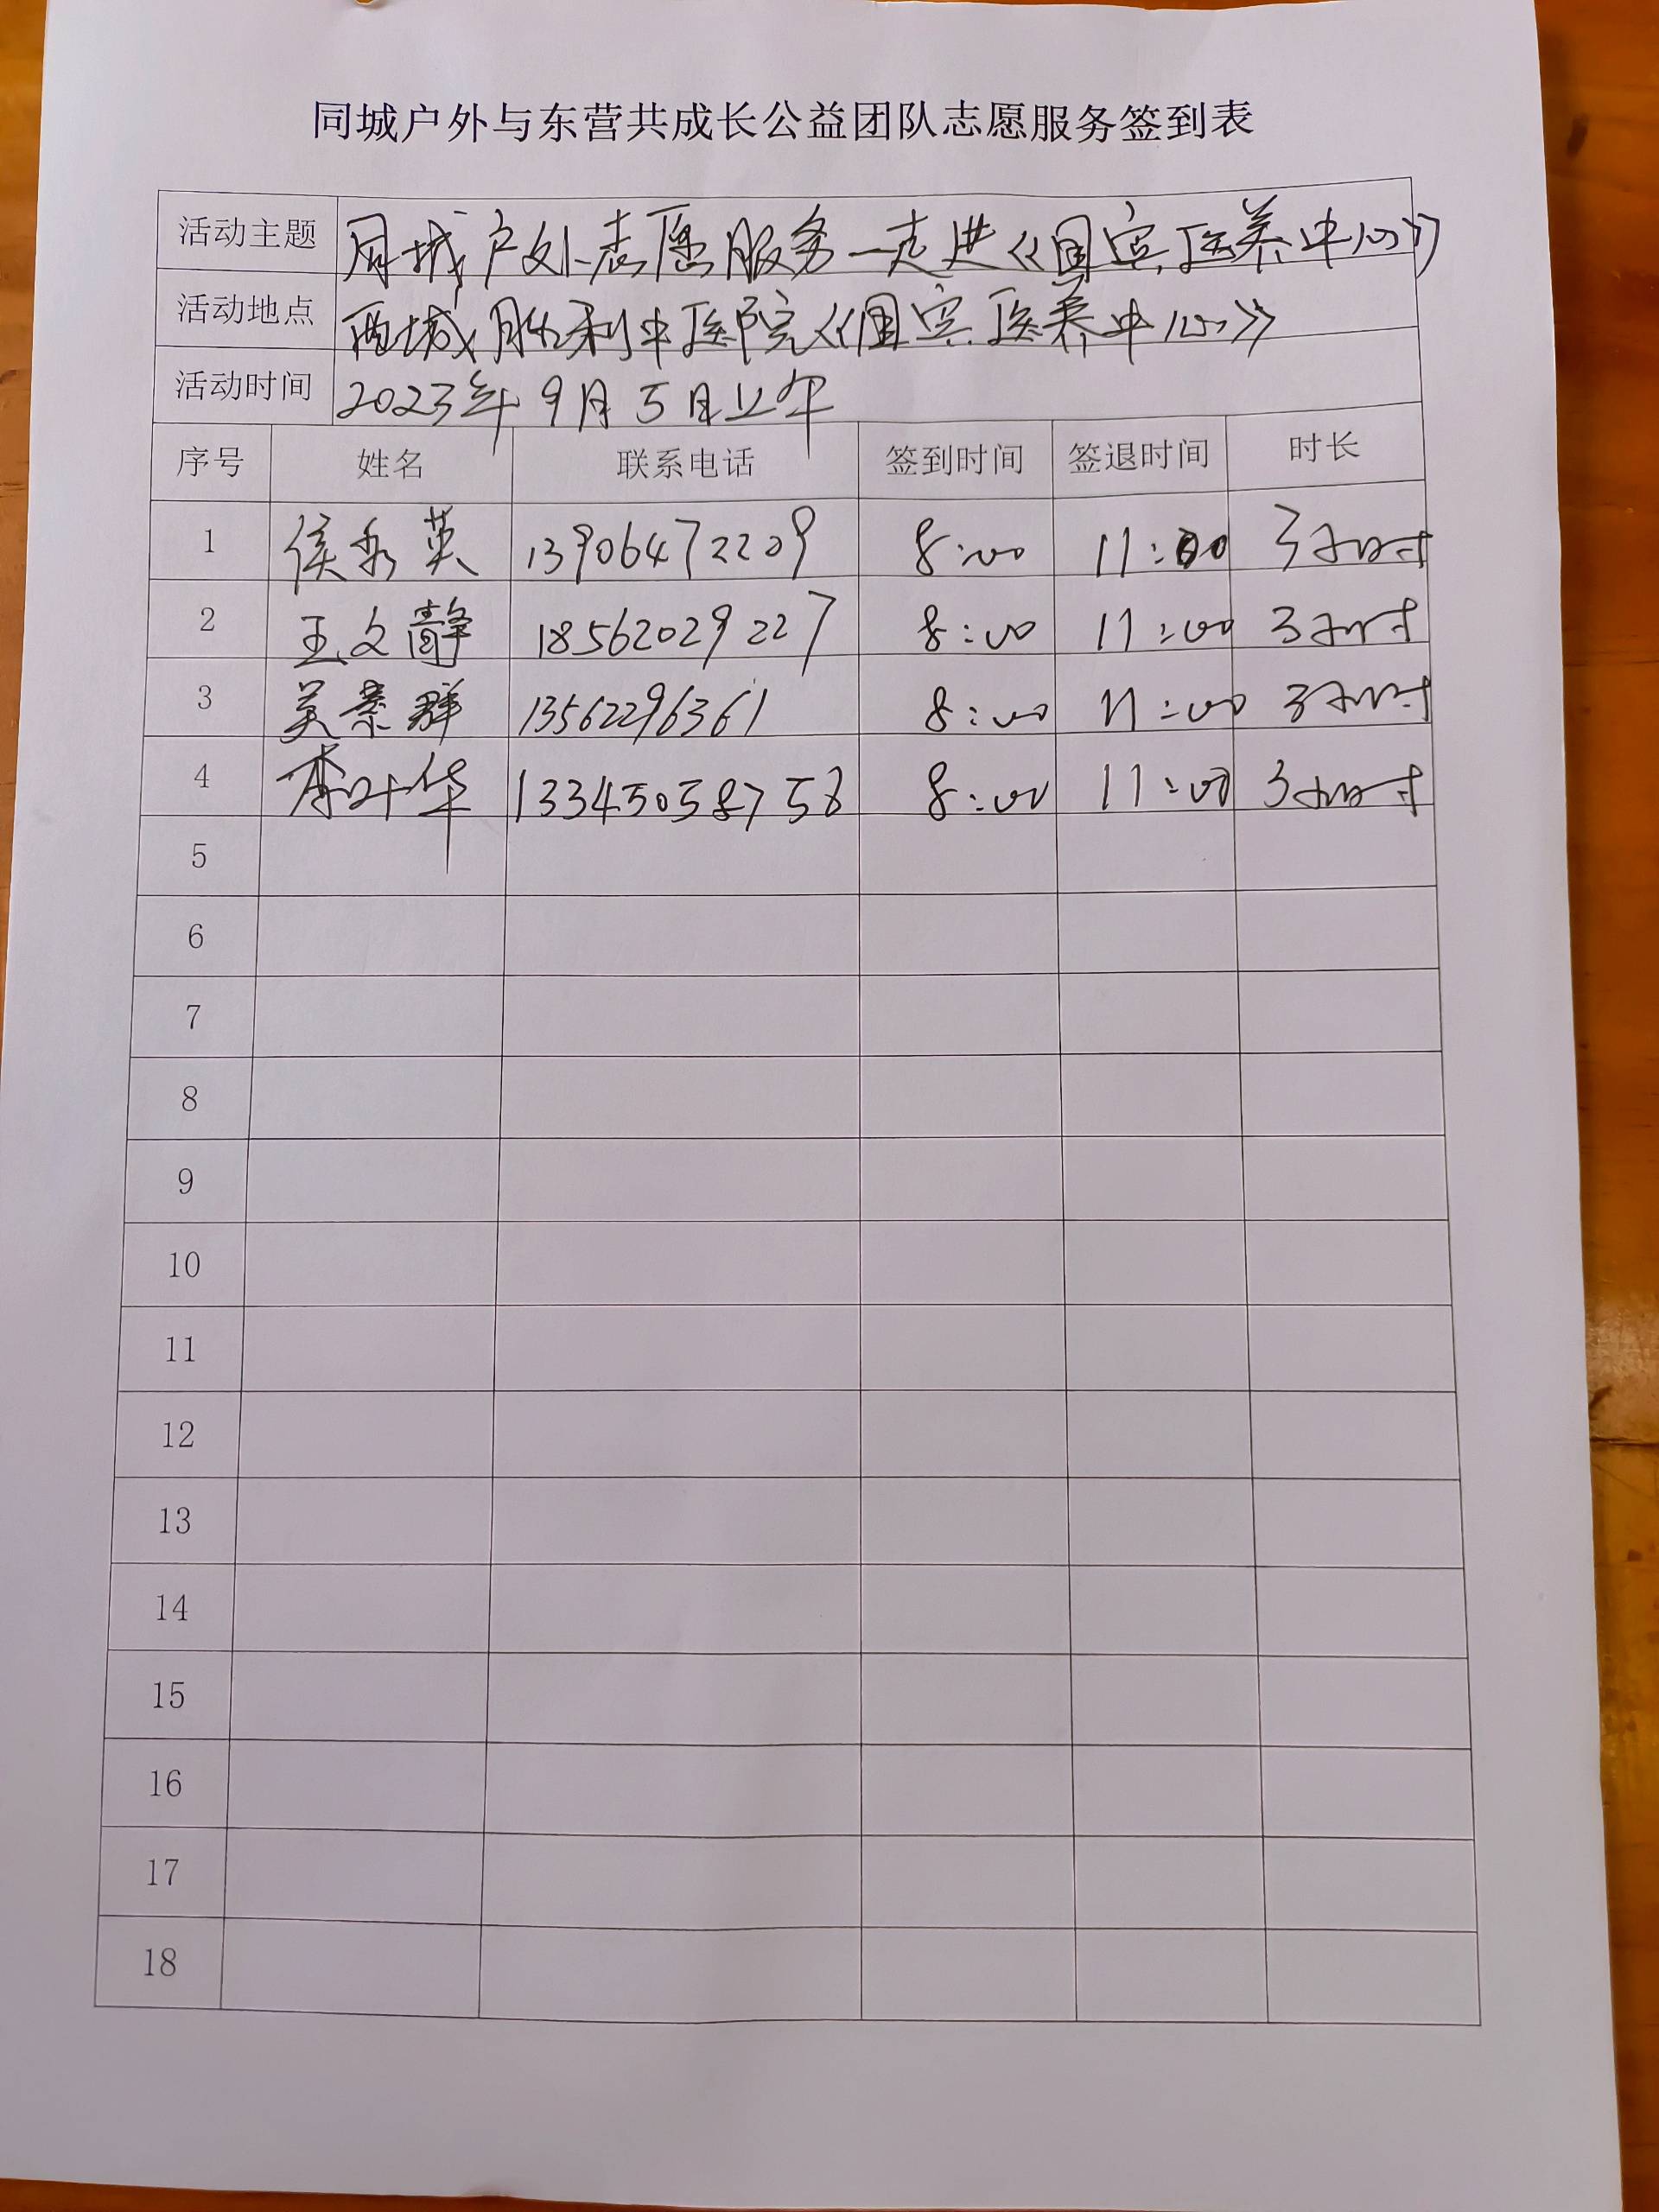 同城户外与东营共成长公益团队志愿服务签到表
活动主题 同城户外志愿服务一走进《国宾医养中心》
活动地点 西城胜利中医院《国宾医养中心》
活动时间 2023年9月5日上午
序号 姓名 联系电话 签到时间 签退时间 时长
1 侯秀英 13906472209 8:00 11:00 3小时
2 王文静 18562029227 8:00 11:00 3小时
3 吴素群 13562296361 8:00 11:00 3小时
4 李叶华 13345058758 8:00 11:00 3小时
5
6
7
8
9
10
11
12
13
14
15
16
17
18